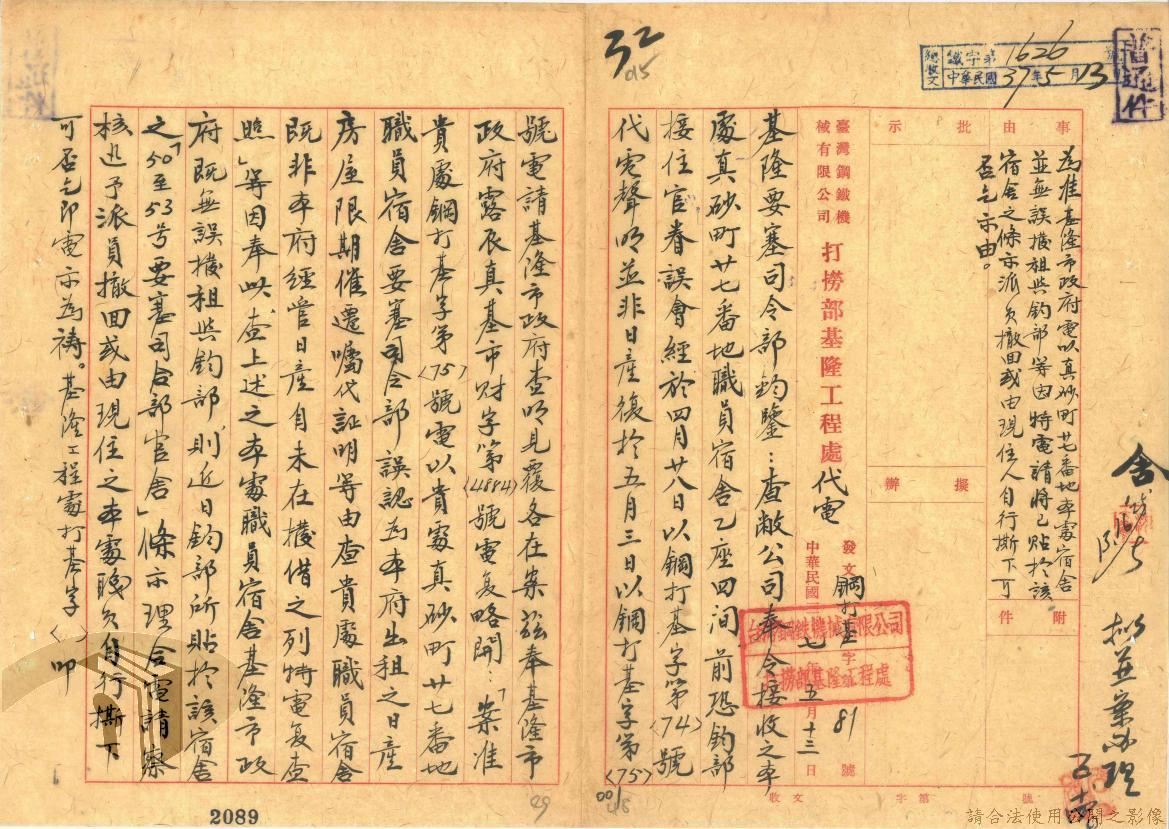 普通件
總收文 鐵字第1626號
中華民國37年5月13
32
事由
為准基隆市政府電以真砂町廿七番地本處宿舍
並無誤撥租與鈞部等因特電請將已貼於該
宿舍之條示派員撤回或由現住人自行撕下可
否乞示由。
批示
擬辦
附件
擬並案办理
臺灣鋼鐵機械有限公司打撈部基隆工程處代電
發文鋼打基字81號
中華民國三七年五月十三日
台灣鋼鐵機械有限公司
打撈部基隆工程處
基隆要塞司令部鈞鑒：查敝公司奉令接收之本
處真砂町廿七番地職員宿舍乙座四间前恐鈞部
接住官眷誤會經於四月廿八日以鋼打基字第(74)號
代電聲明並非日產復於五月三日以鋼打基字第(75)
號電請基隆市政府查明見覆各在案茲奉基隆市
政府露辰真基市财字第(4884)號電复略開：「案准
貴處鋼打基字第(75)號電以貴處真砂町廿七番地
職員宿舍要塞司令部誤認為本府出租之日產
房屋限期催遷囑代証明等由查貴處職員宿舍
既非本府經管日產自未在撥借之列特電复查
照」等因奉此查上述之本處職員宿舍基隆市政
府既無誤撥租與鈞部則近日鈞部所貼於該宿舍
之「50至53号要塞司令部官舍」條示理合電請察
核迅予派員撤回或由現住之本處職員自行撕下
可否乞即電示為禱。基隆工程處打基字( )叩
收文 字第 號
001
49
2089
請合法使用公開之影像